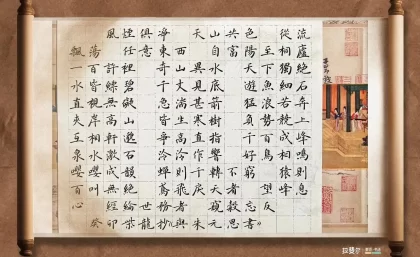 流廬絕石奔上峰鳴則息
從桐獨細若競成相猿峰
至下魚浪勢百鳥望反
色陽天遊猛負千好窮忘書
共富不者穀思
山自水底箭樹指響轉天窺元
天異見甚寒直作千戾朱
西山大湍生高泠則飛者與
淨東奇千急皆爭泠蟬鳶務抄
俱意世龍
煙任碧礙山邈石韻絕綸
風許縹無高軒激成無經卯
蕩百皆視岸相水嚶叫癸
飄一水直夾互泉嚶百心